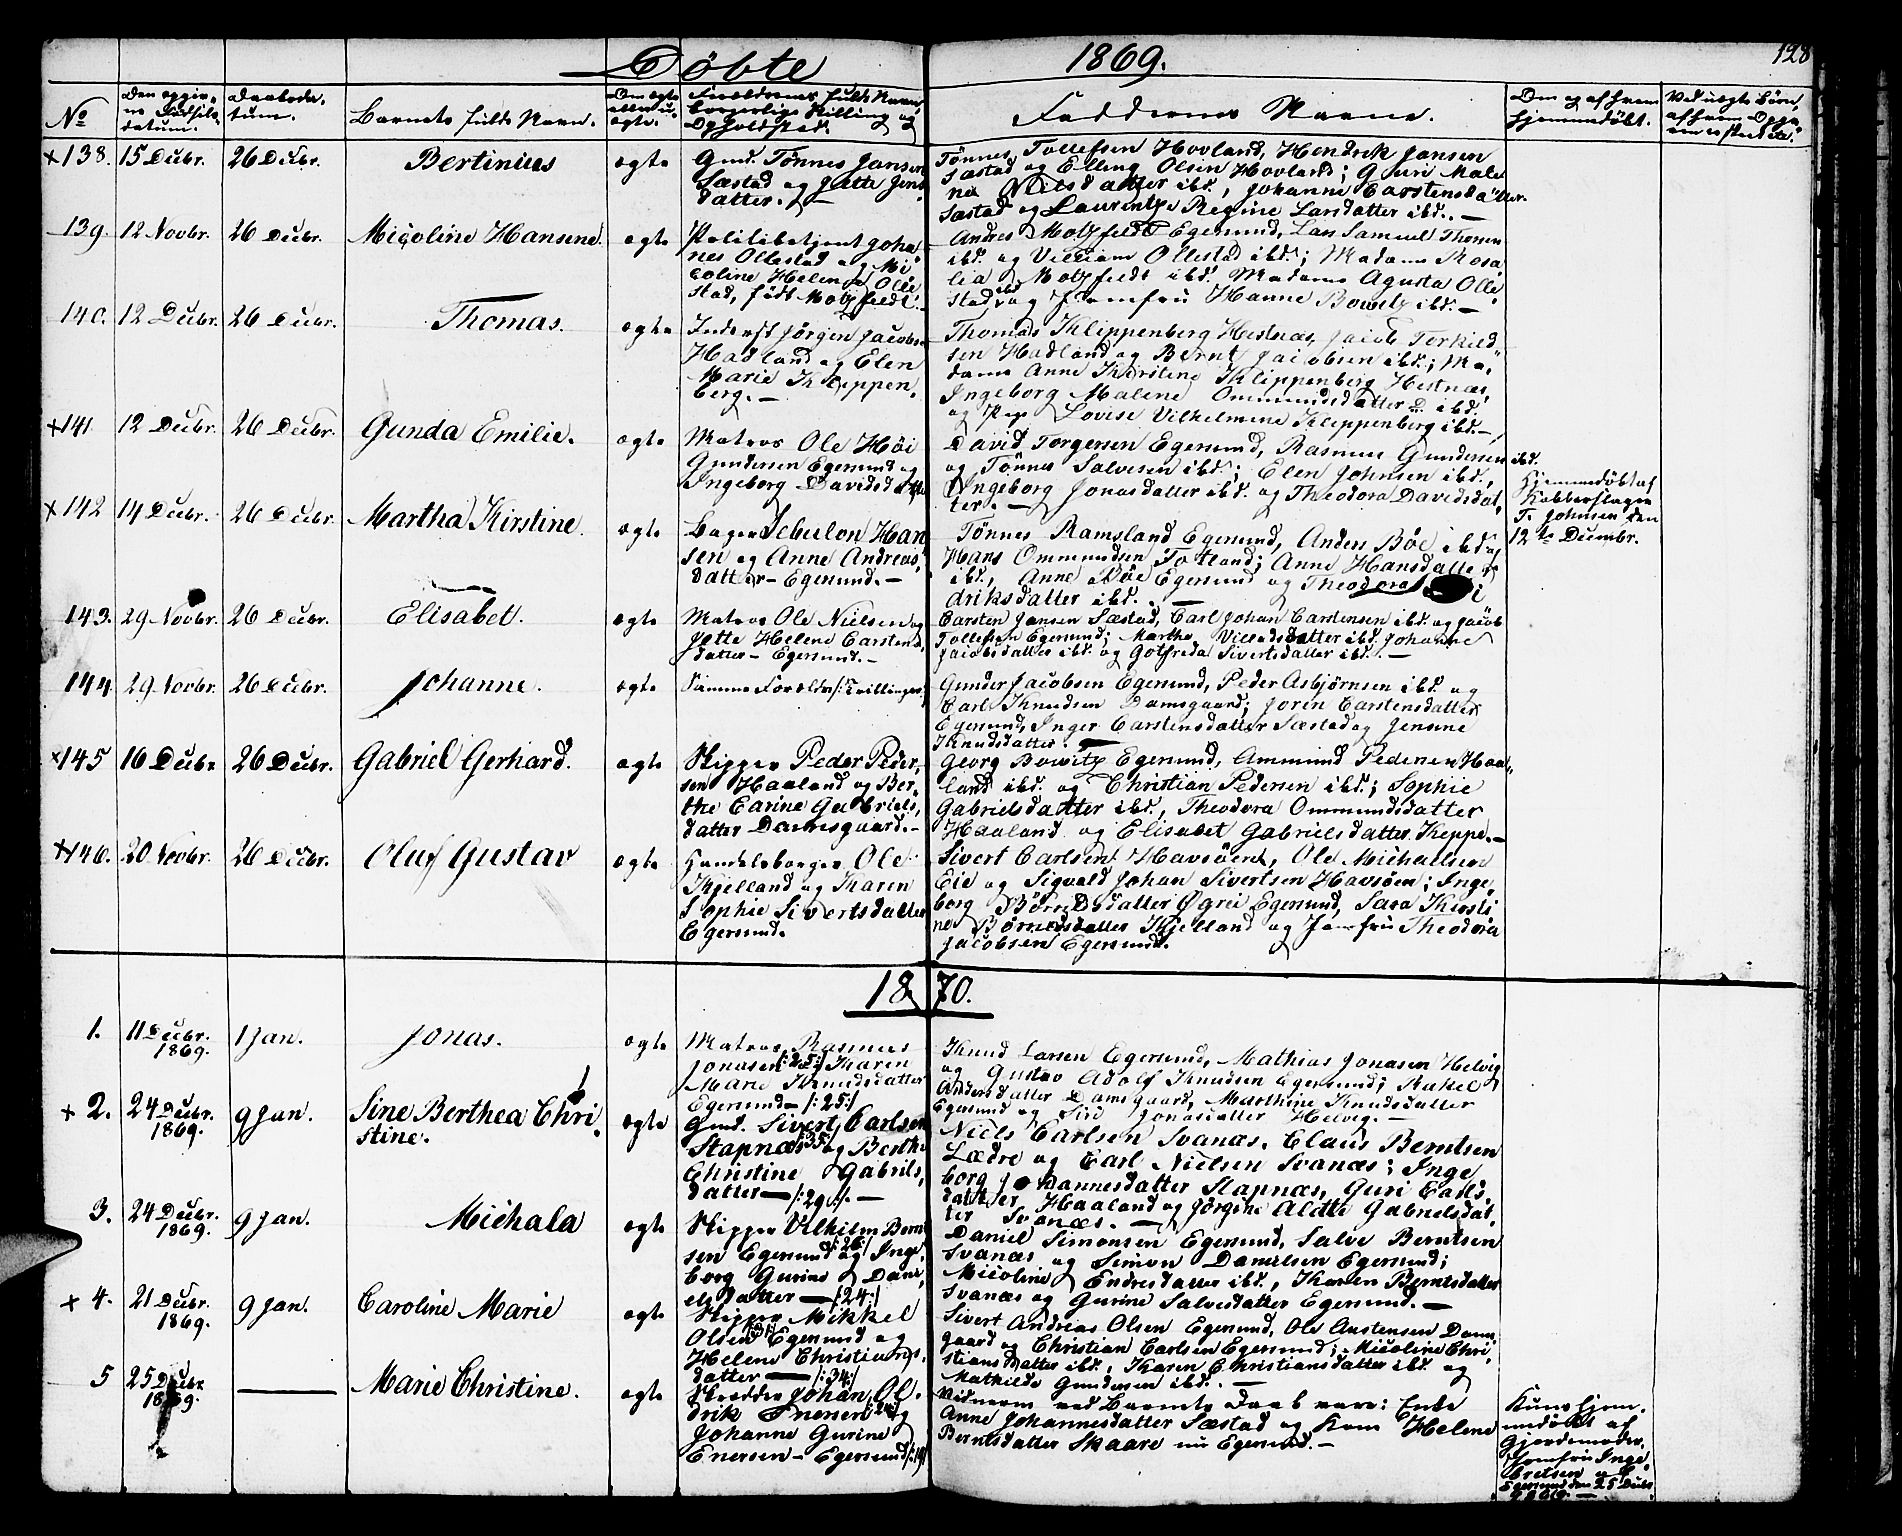 Döbte 1869. 128
No
Den opgiv-
ne Födsels-
datum.
Daabsda-
tum.
Barnets fulde Navn.
Om ægte
eller u-
ægte.
Forældrenes fulde Navn,
borgerlige Stilling og
Opholdsted.
Faddernes Navne.
Om og af hvem
hjemmedöbt.
Ved uægte Börn,
x138. 15 Decbr. 26 Decbr. Bertinius ægte
Gmd. Tönnes Jansen
Sæstad og Jutte Jens
datter. —
Tönnes Tollefsen Hovland, Hendrik Jansen
Sæstad og Elling Olsen Hovland; Guri Male
ne Nilsdatter ibd., Johanne Carstensdatter
Sæstad og Laurentze Regine Larsdatter ibd. —
139. 12 Novbr. 26 Decbr. Micoline Hansene. ægte
Politibetjent Joha
nes Ollestad og Mi
coline Helene Olle
stad, född Motzfeldt.
Andres Motzfeldt Egersund, Lars Samuel Thomsen
ibd. og Villiam Ollestad ibd.; Madame Rosa
lia Motzfeldt ibd. Madame Agusta Olle
stad ibd og Jomfru Hanne Bowitz ibd. —
140. 12 Decbr. 26 Decbr. Thomas. ægte
Inderst Jörgen Jacobsen
Hadland og Elen
Marie Kleppen
berg. —
Thomas Klippenberg Hestnæs, Jacob Terkild
sen Hadland og Bernt Jacobsen ibd.; Ma-
dame Anne Kirstine Klippenberg Hestnæs,
Ingeborg Malene Ommundsdatter ibd.
og Pige Lovise Vilhelmine Klippenberg ibd. —
x141 12 Decbr. 26 Decbr. Gunda Emilie. ægte
Matros Ole Höi
Gundersen Egersund og
Ingeborg Davidsdatter
David Torgersen Egersund, Rasmus Gundersen ibd.
og Tönnes Salvesen ibd.; Elen Johnsen ibd.,
Ingeborg Jonasdatter ibd. og Theodora Davidsdat
ter. —
Hjemmedöbt af
Kobberslager
T. Johnsen den
12te Decembr.
x142 14 Decbr. 26 Decbr. Martha Kirstine. ægte
Bager Sebulon Han
sen og Anne Andreas
datter — Egersund. —
Tönnes Ramsland Egersund, Anders Böe ibd og
Hans Ommundsen Totland; Anne Hansdatter
ibd., Anne Böe Egersund og Theodora
driksdatter ibd. —
143. 29 Novbr. 26 Decbr. Elisabet. ægte
Matros Ole Nielsen og
Jette Helene Carstens
datter — Egersund. —
Carsten Jansen Sæstad, Carl Johan Carstensen ibd. og Jacob
Tollefsen Egersund; Martha Villadsdatter ibd. Johanne
Jacobsdatter ibd. og Gotfreda Sivertsdatter ibd. —
144. 29 Novbr. 26 Decbr. Johanne. ægte
Samme Forældre /: Tvillinger:/
Gunder Jacobsen Egersund, Peder Asbjörnsen ibd. og
Carl Knudsen Damsgaard; Joren Carstensdatter
Egersund, Inger Carstensdatter Sæstad og Jensine
Knudsdatter. —
x145 16 Decbr 26 Decbr. Gabriel Gerhard. ægte
Skipper Peder Peder-
sen Haaland og Ber-
the Carine Gabriels
datter Damsgaard. —
Georg Bowitz Egersund, Ammund Pedersen Haa-
land ibd. og Christian Pedersen ibd.; Sophie
Gabrielsdatter ibd., Theodora Ommundsdatter
Haaland og Elisabet Gabrielsdatter Keppe. —
x146. 20 Novbr. 26 Decbr. Oluf Gustav ægte
Handelsborger Ole
Kjelland og Karen
Sophie Sivertsdatter
Egersund.
Sivert Carlsen Havsöen, Ole Michaelsen
Eie og Sigvald Johan Sivertsen Havsöen; Inge
borg Berntsdatter Ögrei Egersund, Sara Kirsti
ne Börresdatter Kjelland og Jomfru Theodora
Jacobsen Egersund.
1870.
1. 11 Decbr. 1869. 1 Jan. Jonas. ægte
Matros Rasmus
Jonasen /:25:/ Karen
Marie Knudsdatter
Egersund — /:25:/
Knud Larsen Egersund, Mathias Jonasen Helvig
og Gustav Adolf Knudsen Egersund; Rakel
Andersdatter Damsgaard, Marthine Knudsdatter
Egersund og Siri Jonasdatter Helvig. —
x 2. 24 Decbr. 1869. 9 Jan. Sine Berthea Chri
stine. ægte
Gmd. Sivert Carlsen
Stapnæs /:35:/ og Berthe
Christine Gabriels
datter — /:29:/ —
Niels Carlsen Svanæs, Claus Berntsen
Lædre og Carl Nielsen Svanæs; Inge
borg Johannesdatter Stapnæs, Guri Carls
datter Haaland og Jörgine Aldte Gabrielsdat
ter Svanæs. —
3. 24 Decbr. 1869. 9 Jan. Michala ægte
Skipper Vilhelm Bernt
sen Egersund /:26:/ og Inge
borg Gurine Dani
elsdatter — /:24:/
Daniel Simonsen Egersund, Salve Berntsen
Svanæs og Simon Danielsen Egersund;
Micoline Endresdatter ibd., Karen Berntsdatter
Svanæs og Gurine Salvesdatter Egersund. —
x 4. 21 Decbr. 1869. 9 Jan. Caroline Marie ægte
Skipper Mikkel
Olsen /:31:/ Egersund og
Helene Christians
datter — /:34:/
Sivert Andreas Olsen Egersund, Ole Austensen Dams
gaard og Christian Carlsen Egersund; Micoline Chri
stiansdatter ibd., Karen Christiansdatter ibd. og
Mathilde Gundersen ibd. —
5 25 Decbr 1869. — Marie Christine. ægte
Skrædder Johan Ol-
drik Enersen og
Johanne Gurine
Enersen — Egersund /:19:/
Vidnerne ved Barnets Daab vare: Enke
Anne Johannesdatter Sæstad og Kone Helene
Berntsdatter Skaare nu Egersund. —
Kuns hjem-
medöbt af
Gjordemoder
Jomfru Inge
bretsen
Egersund den 25 Decbr
1869. —